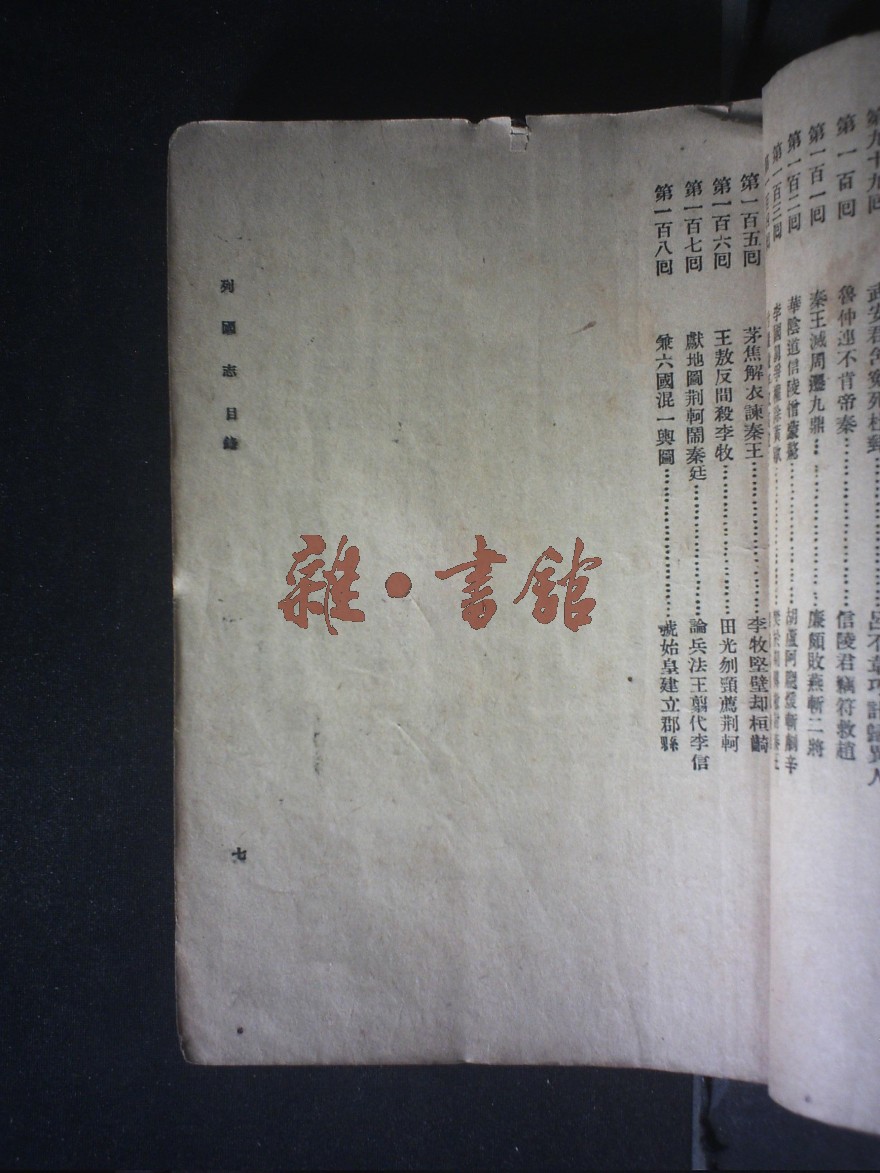 第九十九回 武安君含冤死杜郵 呂不韋巧計歸異人
第一百回 魯仲連不肯帝秦 信陵君竊符救趙
第一百一回 秦王滅周遷九鼎 廉頗敗燕斬二將
第一百二回 華陰道信陵敗蒙驁 胡盧河龐煖斬劇辛
第一百三回
第一百五回 茅焦解衣諫秦王 李牧堅壁却桓齮
第一百六回 王敖反間殺李牧 田光刎頸薦荆軻
第一百七回 獻地圖荆軻鬧秦廷 論兵法王翦代李信
第一百八回 兼六國混一輿圖 號始皇建立郡縣
列國志目錄
七
雜·書館